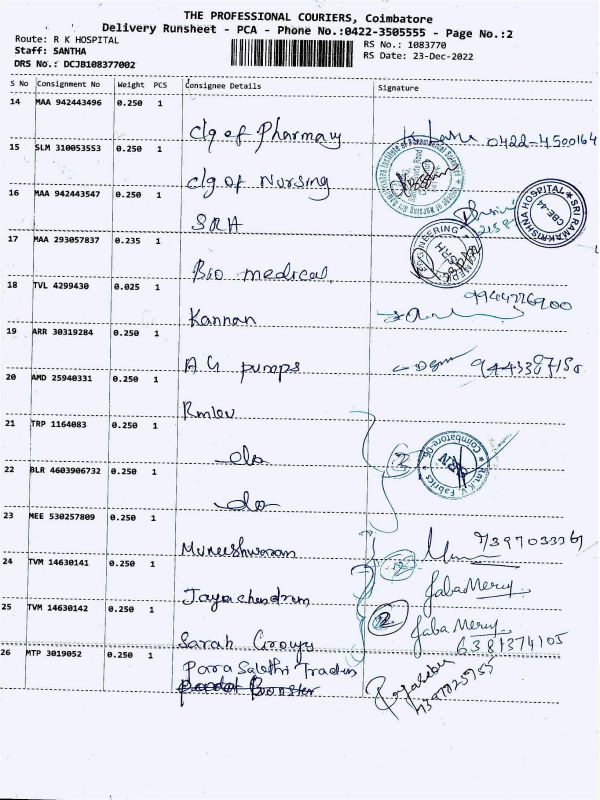 THE PROFESSIONAL COURIERS, Coimbatore
Delivery Runsheet - PCA - Phone No.:0422-3505555 - Page No.:2
Route: R K HOSPITAL
RS No.: 1083770
Staff: SANTHA
RS Date: 23-Dec-2022
DRS No.: DCJB108377002
S No Consignment No Weight PCS Consignee Details Signature
14 MAA 942443496 0.250 1
clg of Pharmacy 0422-4500164
15 SLM 310053553 0.250 1
clg of Nursing
16 MAA 942443547 0.250 1
SRH
SRI RAMAKRISHNA HOSPITAL
CBE-44
17 MAA 293057837 0.235 1
Bio medical
18 TVL 4299430 0.025 1
Kannan 9944776900
19 ARR 30319284 0.250 1
A G pumps
20 AMD 25940331 0.250 1
21 TRP 1164083 0.250 1
do 2
R.m.K.V. Fabrics Coimbatore-06
22 BLR 4603906732 0.250 1
do
23 MEE 530257809 0.250 1
Muneeshwaran 7397033367
24 TVM 14630141 0.250 1
Jayachandran Jaba Mercy
25 TVM 14630142 0.250 1
Sarah Groups 2 Jaba Mercy
6381374105
26 MTP 3019052 0.250 1
Para Salethi Traders